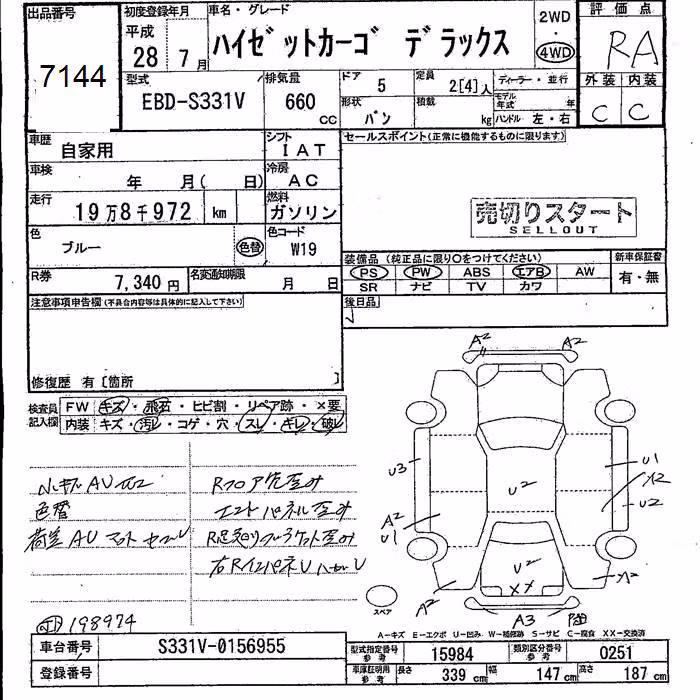 出品番号
7144
初度登録年月
平成
28年 7月
車名・グレード
ハイゼットカーゴ デラックス
2WD
・
4WD
評価点
RA
外装 内装
C C
型式
EBD-S331V
排気量
660
cc
ドア
5
定員
2[4]人
形状
バン
積載
kg
ディーラー・並行
モデル年式 年
ハンドル 左・右
車歴
自家用
シフト
IAT
セールスポイント(正常に機能するものに限ります)
車検
年 月( 日)
冷房
AC
走行
19万8千972 km
燃料
ガソリン
売切りスタート
SELLOUT
色
ブルー
色替
色コード
W19
装備品 (純正品に限り○をつけてください)
新車保証書
PS PW ABS エアB AW
SR ナビ TV カワ
有・無
R券
7,340円
名変通知期限
月 日
後日品
注意事項申告欄(不具合内容等は具体的に記入して下さい)
修復歴 有〔箇所 〕
検査員記入欄
FW キズ・飛石・ヒビ割・リペア跡・×要
内装 キズ・汚レ・コゲ・穴・スレ・キレ・破レ
色替
Rフロア先歪み
エンドパネル歪み
198974
A2 A2
U3
U1
X2
U2
U2
A2
U1
U2
XX
A2
X2
A3
スペア
A-キズ E-エクボ U-凹み W-補修跡 S-サビ C-腐食 XX-交換済
車台番号
S331V-0156955
登録番号
型式指定番号
参考
15984
類別区分番号
参考
0251
車庫証明用
参考
長さ 339cm 幅 147cm 高さ 187cm